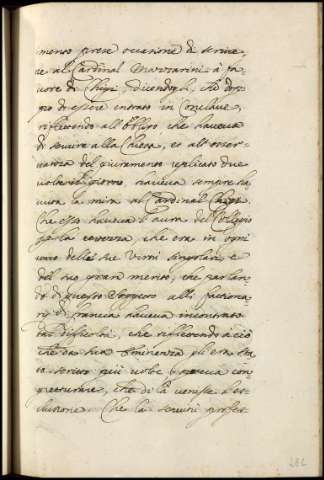 mento prese occasione di scrive-
re al Cardinal Mazzarini à fa-
vore di Chigi, dicendogli, che dop-
po di essere entrato in Conclave,
riflettendo all'obligo che haveva
di servire alla Chiesa, et all'osser-
vanza del giuramento replicato due
volte il giorno, haveva sempre ha-
vuta la mira al Cardinal Chigi,
Che esso haveva l'aura del Collegio
per la credenza, che era in ogni
uno delle sue Virtù singolari, e
del suo gran merito, che parlan-
do di questo Soggetto alli fationa-
rij di francia haveva incontrato
che riflettendo à ciò
che da sua Eminenza gli era sta-
to scritto più volte poteva con-
getturare, che di là venisse l'es-
clusione. Che la servirù profes-
286